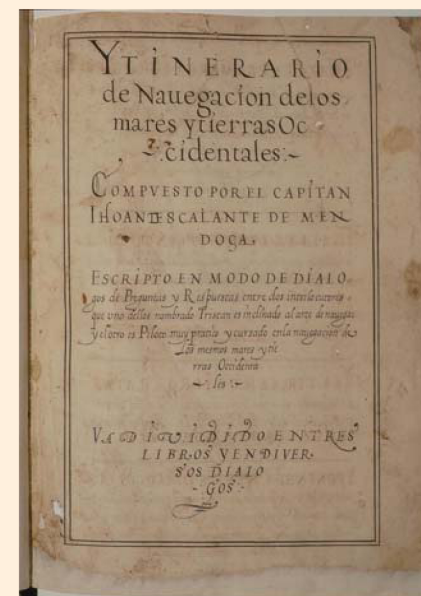 YTINERARIO
de Nauegacion delos
mares ytierrasOc
cidentales:~
COMPVESTO POR EL CAPITAN
IHOANDESCALANTE DE MEN
DOÇA.
ESCRIPTO EN MODO DE DIALO
gos de Preguntas y Respuestas entre dos interlocutores
que vno dellos nombrado Tristan es inclinado al arte de nauegar
y el otro es Piloto muy pratico y cursado en la nauegacion de
Los mesmos mares y tie
rras Occidenta
les :~
VA DIVIDIDO EN TRES
LIBROS Y EN DIVER
SOS DIALO
GOS